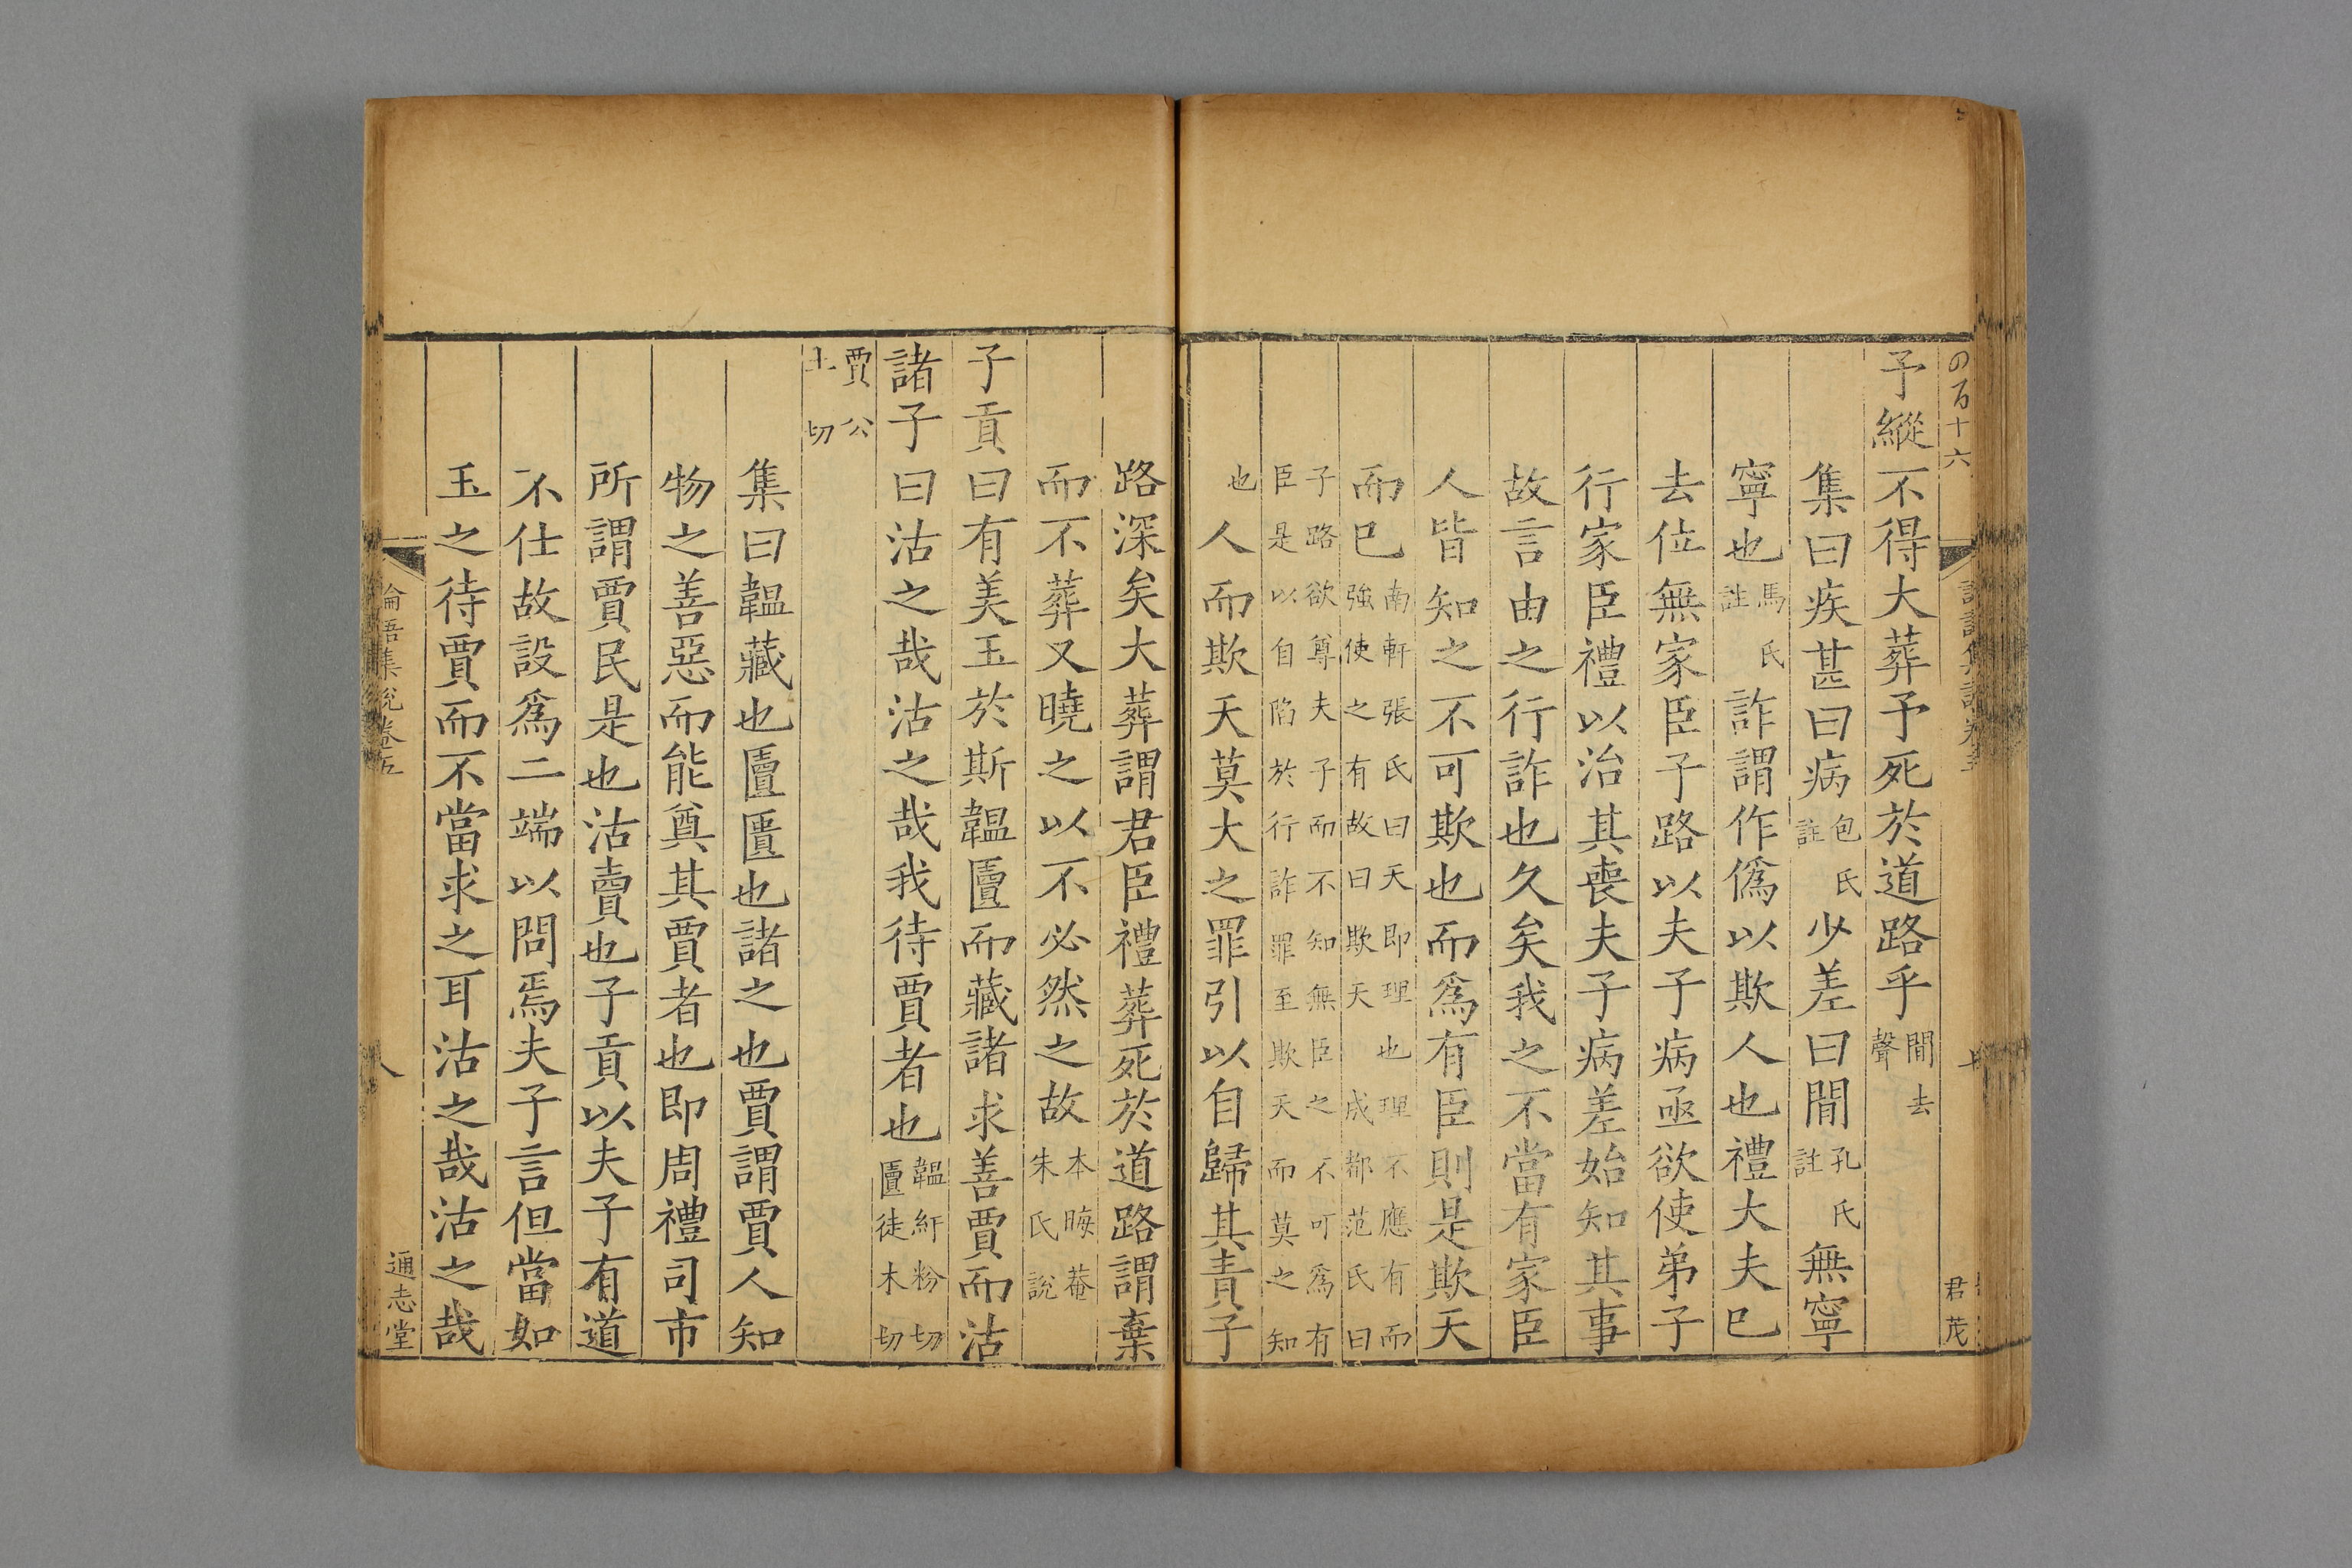 予縱不得大葬予死於道路乎間去聲
集曰疾甚曰病包氏註少差曰間孔氏註無寧
寧也馬氏註詐謂作僞以欺人也禮大夫巳
去位無家臣子路以夫子病亟欲使弟子
行家臣禮以治其喪夫子病差始知其事
故言由之行詐也久矣我之不當有家臣
人皆知之不可欺也而爲有臣則是欺天
而巳南軒張氏曰天即理也理不應有而強使之有故曰欺天成都范氏曰
子路欲尊夫子而不知無臣之不可爲有臣是以自陷於行詐罪至欺天而莫之知
也人而欺天莫大之罪引以自歸其責子
路深矣大葬謂君臣禮葬死於道路謂棄
而不葬又曉之以不必然之故本晦菴朱氏說
子貢曰有美玉於斯韞匵而藏諸求善賈而沽
諸子曰沽之哉沽之哉我待賈者也韞紆粉切匵徒木切
賈公土切
集曰韞藏也匵匱也諸之也賈謂賈人知
物之善惡而能奠其賈者也即周禮司市
所謂賈民是也沽賣也子貢以夫子有道
不仕故設爲二端以問焉夫子言但當如
玉之待賈而不當求之耳沽之哉沽之哉
論語集說卷五
八
通志堂
君茂